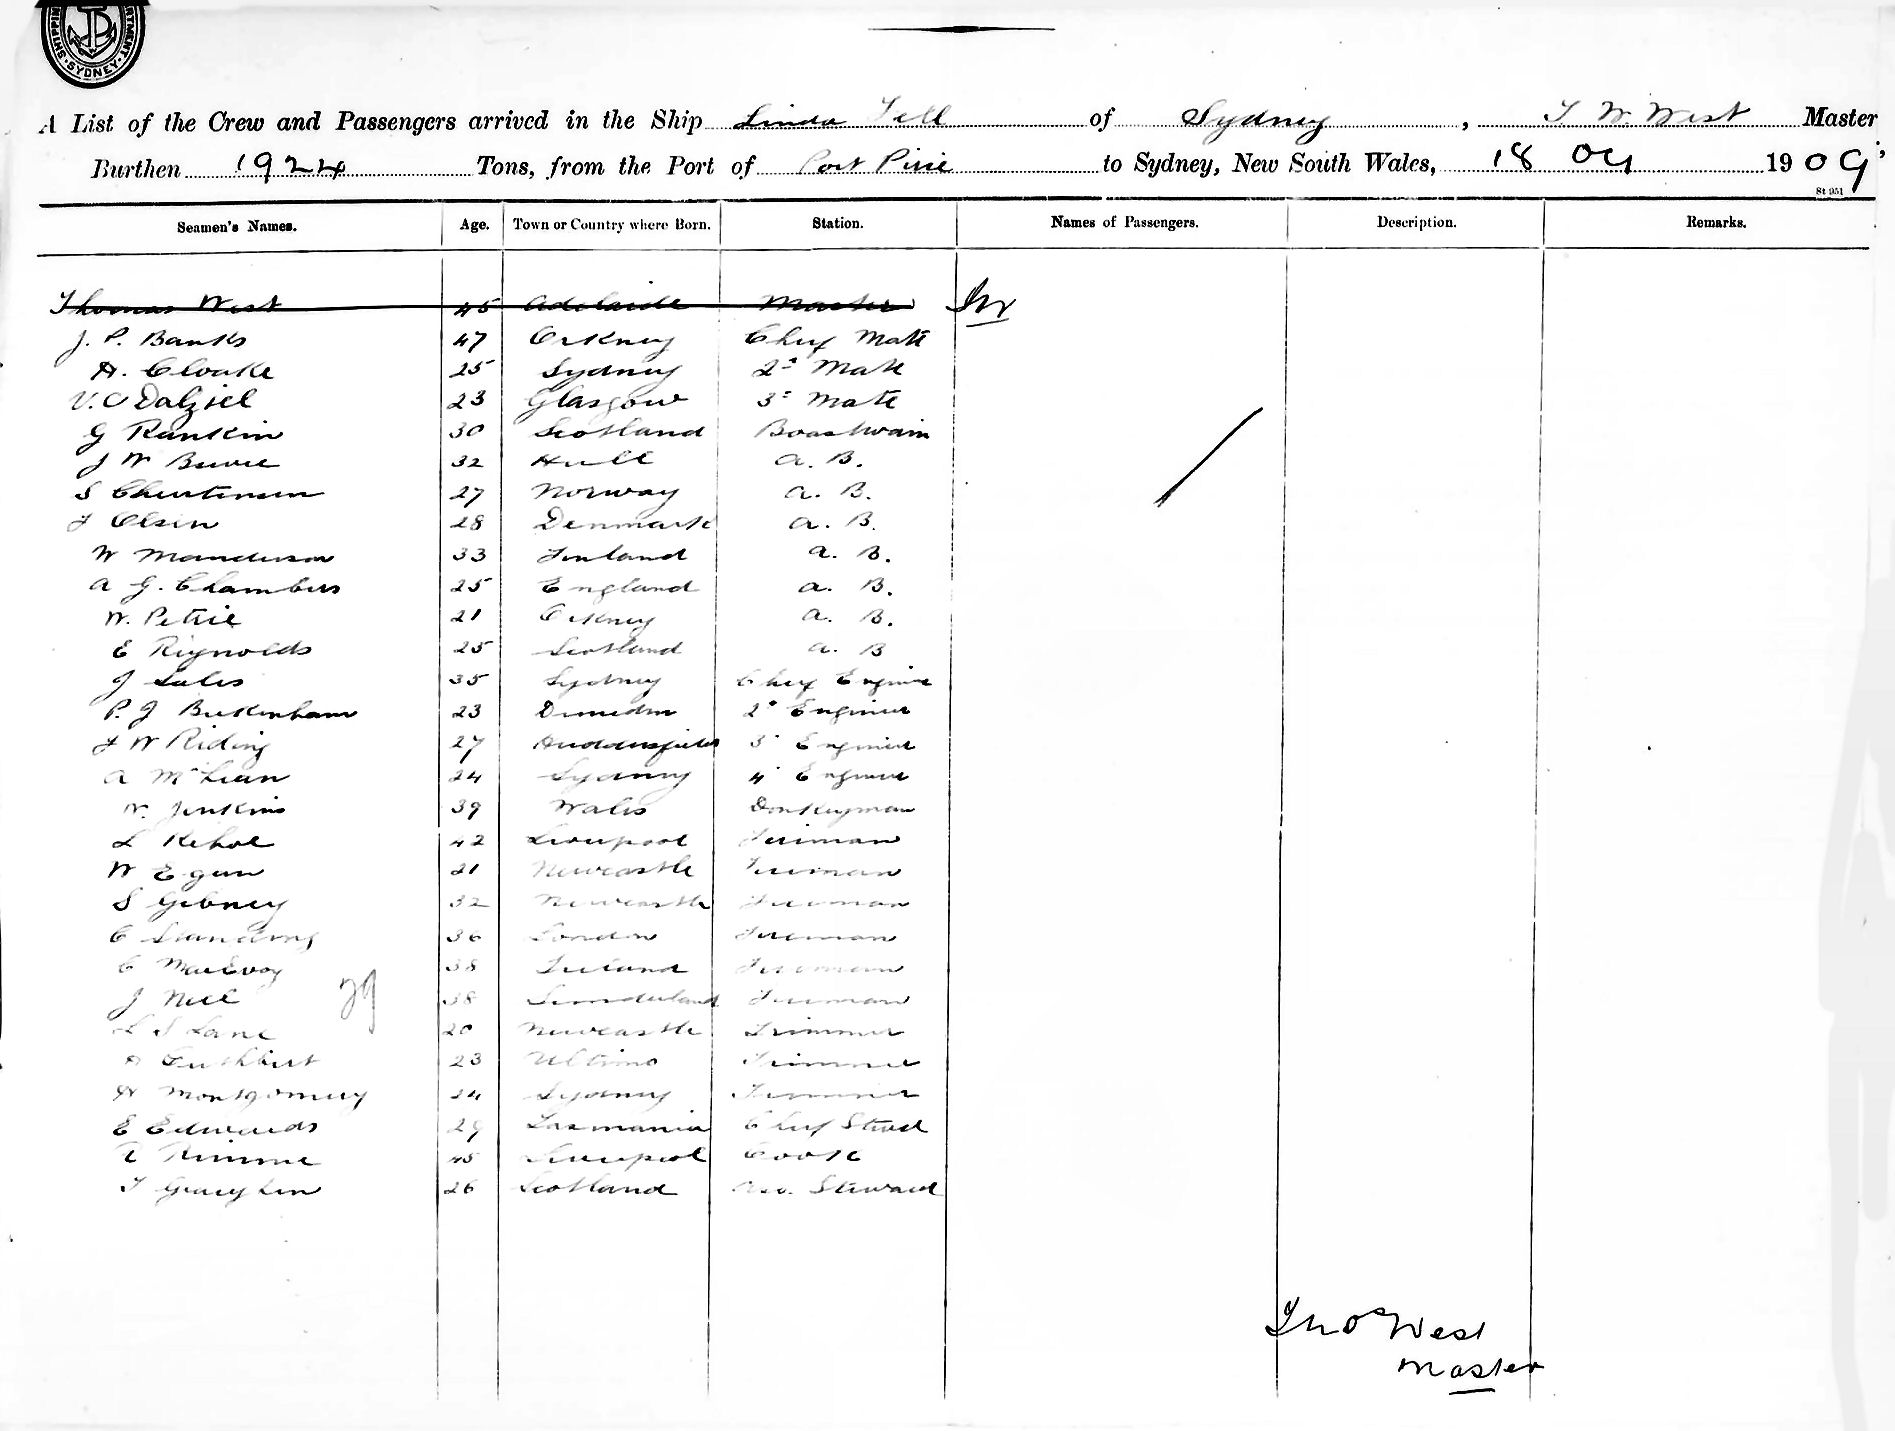 SHIPPING DEPARTMENT SYDNEY
A List of the Crew and Passengers arrived in the Ship Linda Fell of Sydney, T W West Master
Burthen 1924 Tons, from the Port of Port Pirie to Sydney, New South Wales, 18 Oct 1909
St 951
Seamen's Names. Age. Town or Country where Born. Station. Names of Passengers. Description. Remarks.
Thomas West 45 Adelaide Master
J. P. Banks 47 Orkney Chief Mate
A. Cloake 25 Sydney 2d Mate
V. C Dalziel 23 Glasgow 3d Mate
G Rankin 30 Scotland Boastwain
J W 32 Hull A. B.
S Christensen 27 Norway A. B.
J Olsen 28 Denmark A. B.
W Manderson 33 Finland A. B.
A G. Chambers 25 England A. B.
W. Petrie 21 Orkney A. B.
E Reynolds 25 Scotland A. B
J Sales 35 Sydney Chief Engineer
P. J Birkenham 23 Dunedin 2d Engineer
J W Riding 27 Huddersfield 3d Engineer
A McLean 24 Sydney 4 Engineer
W. Jenkins 39 Wales Donkeyman
L Kehoe 42 Liverpool Fireman
W Egan 21 Newcastle Fireman
S Gibney 32 Newcastle Fireman
C Standing 36 London Fireman
C MacEvoy 38 Ireland Fireman
J Neil 38 Sunderland Fireman
29
L S Lane 20 Newcastle Trimmer
A Cuthbert 23 Ultimo Trimmer
A Montgomery 24 Sydney Trimmer
E Edwards 29 Tasmania Chief Steward
Rimmer 45 Liverpool Cook
T 26 Scotland Steward
Thos West
Master